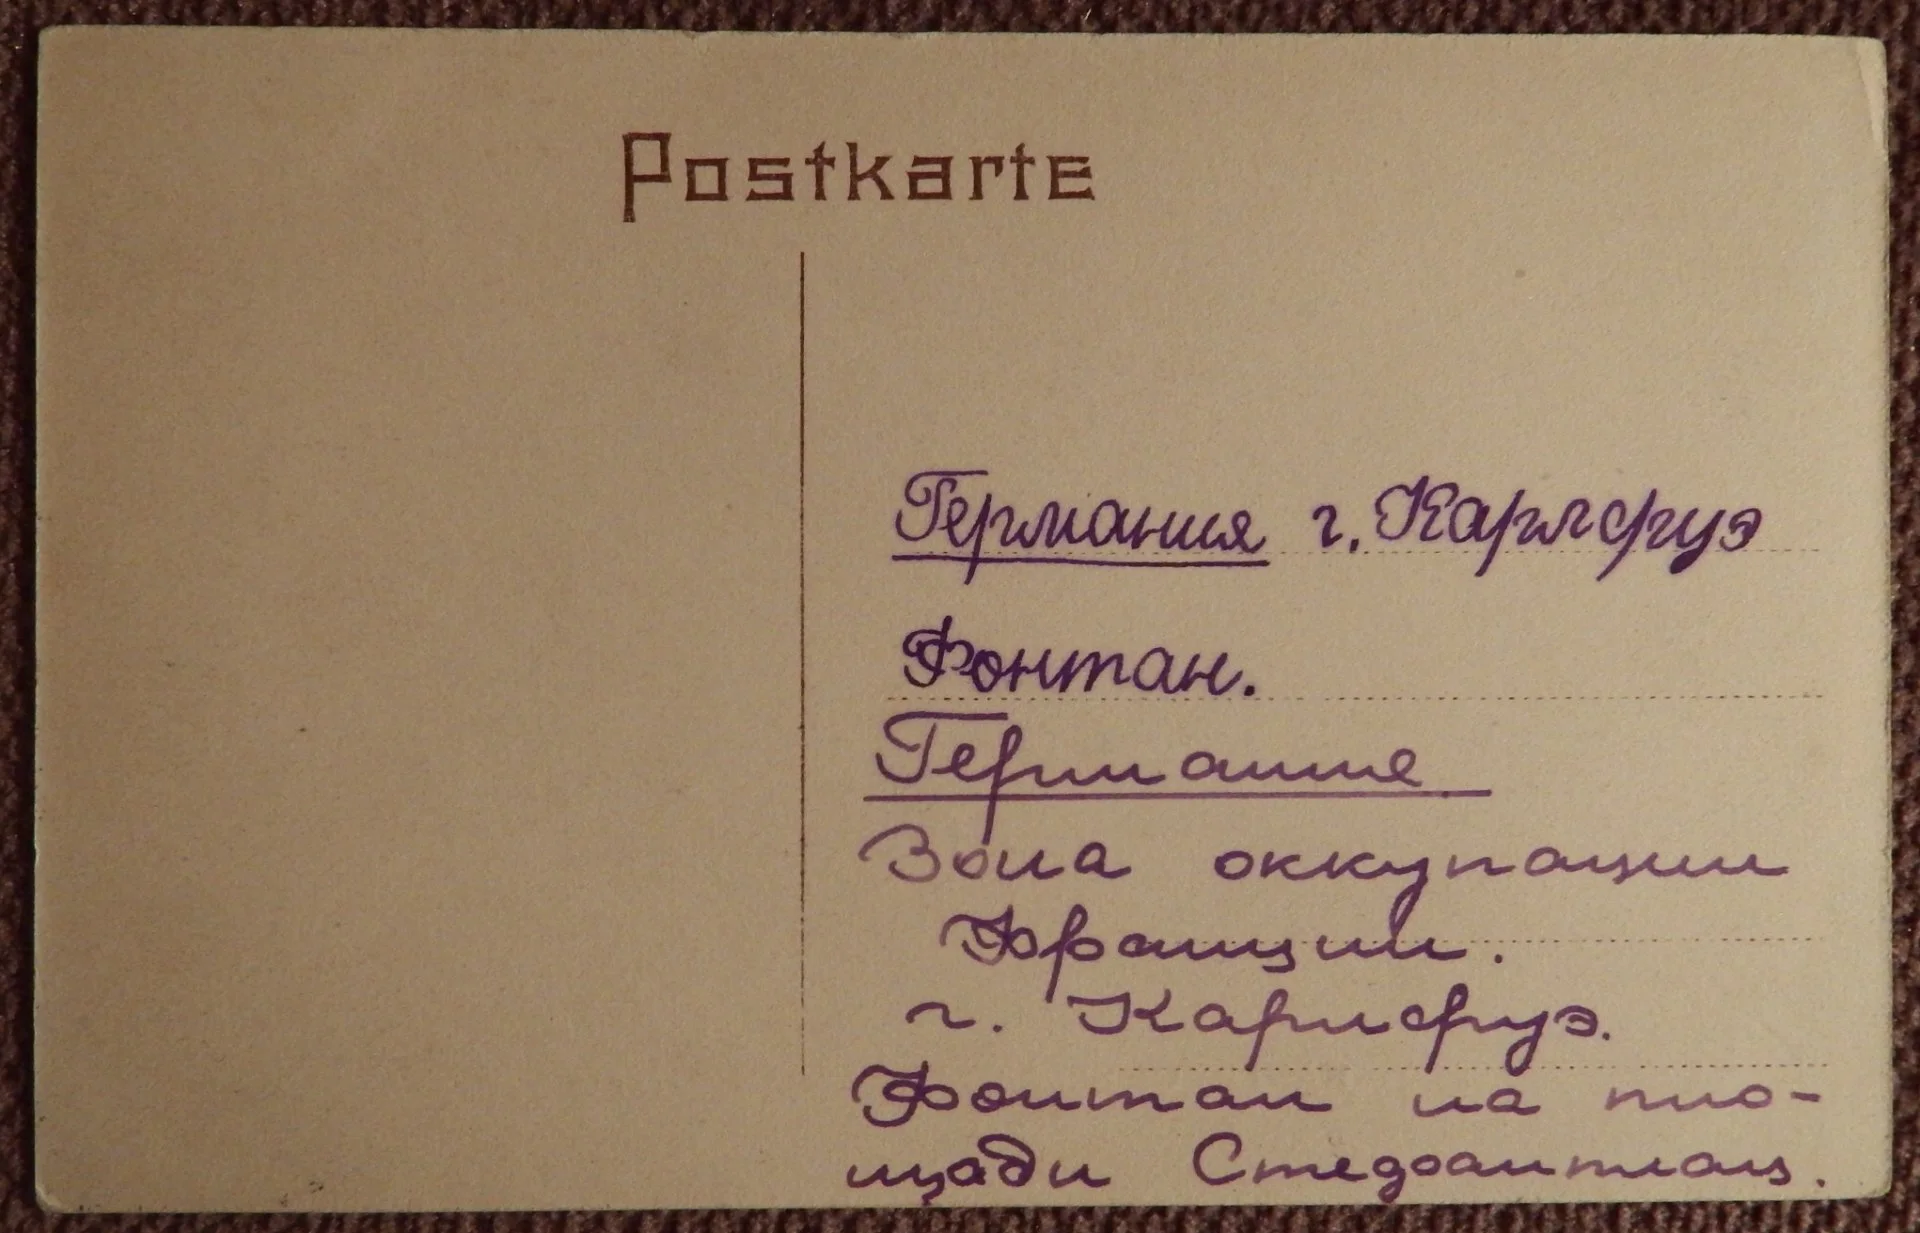 Postkarte
Германия г. Карлсруэ
Фонтан.
Германия
Зона оккупации
Франции.
г. Карлсруэ.
Фонтан на пло-
щади